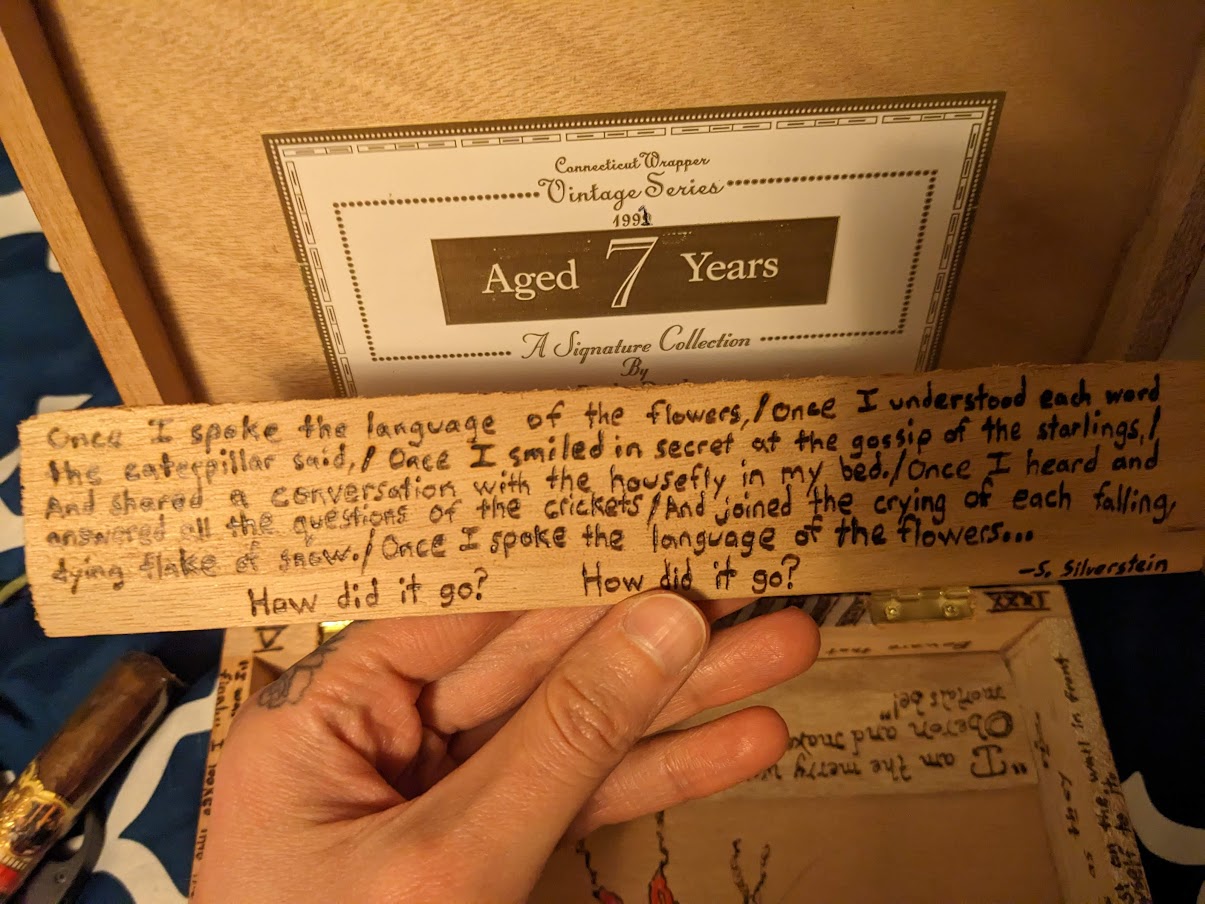 Connecticut Wrapper
Vintage Series
1991
Aged 7 Years
A Signature Collection
By
Once I spoke the language of the flowers,/Once I understood each word
the caterpillar said,/Once I smiled in secret at the gossip of the starlings,/
And shared a conversation with the housefly in my bed./Once I heard and
answered all the questions of the crickets/And joined the crying of each falling,
dying flake of snow./Once I spoke the language of the flowers...
How did it go? How did it go?
-S. Silverstein
"I am the merry
Oberon and make
mortals be!"
in front
as they
the wall
finally I